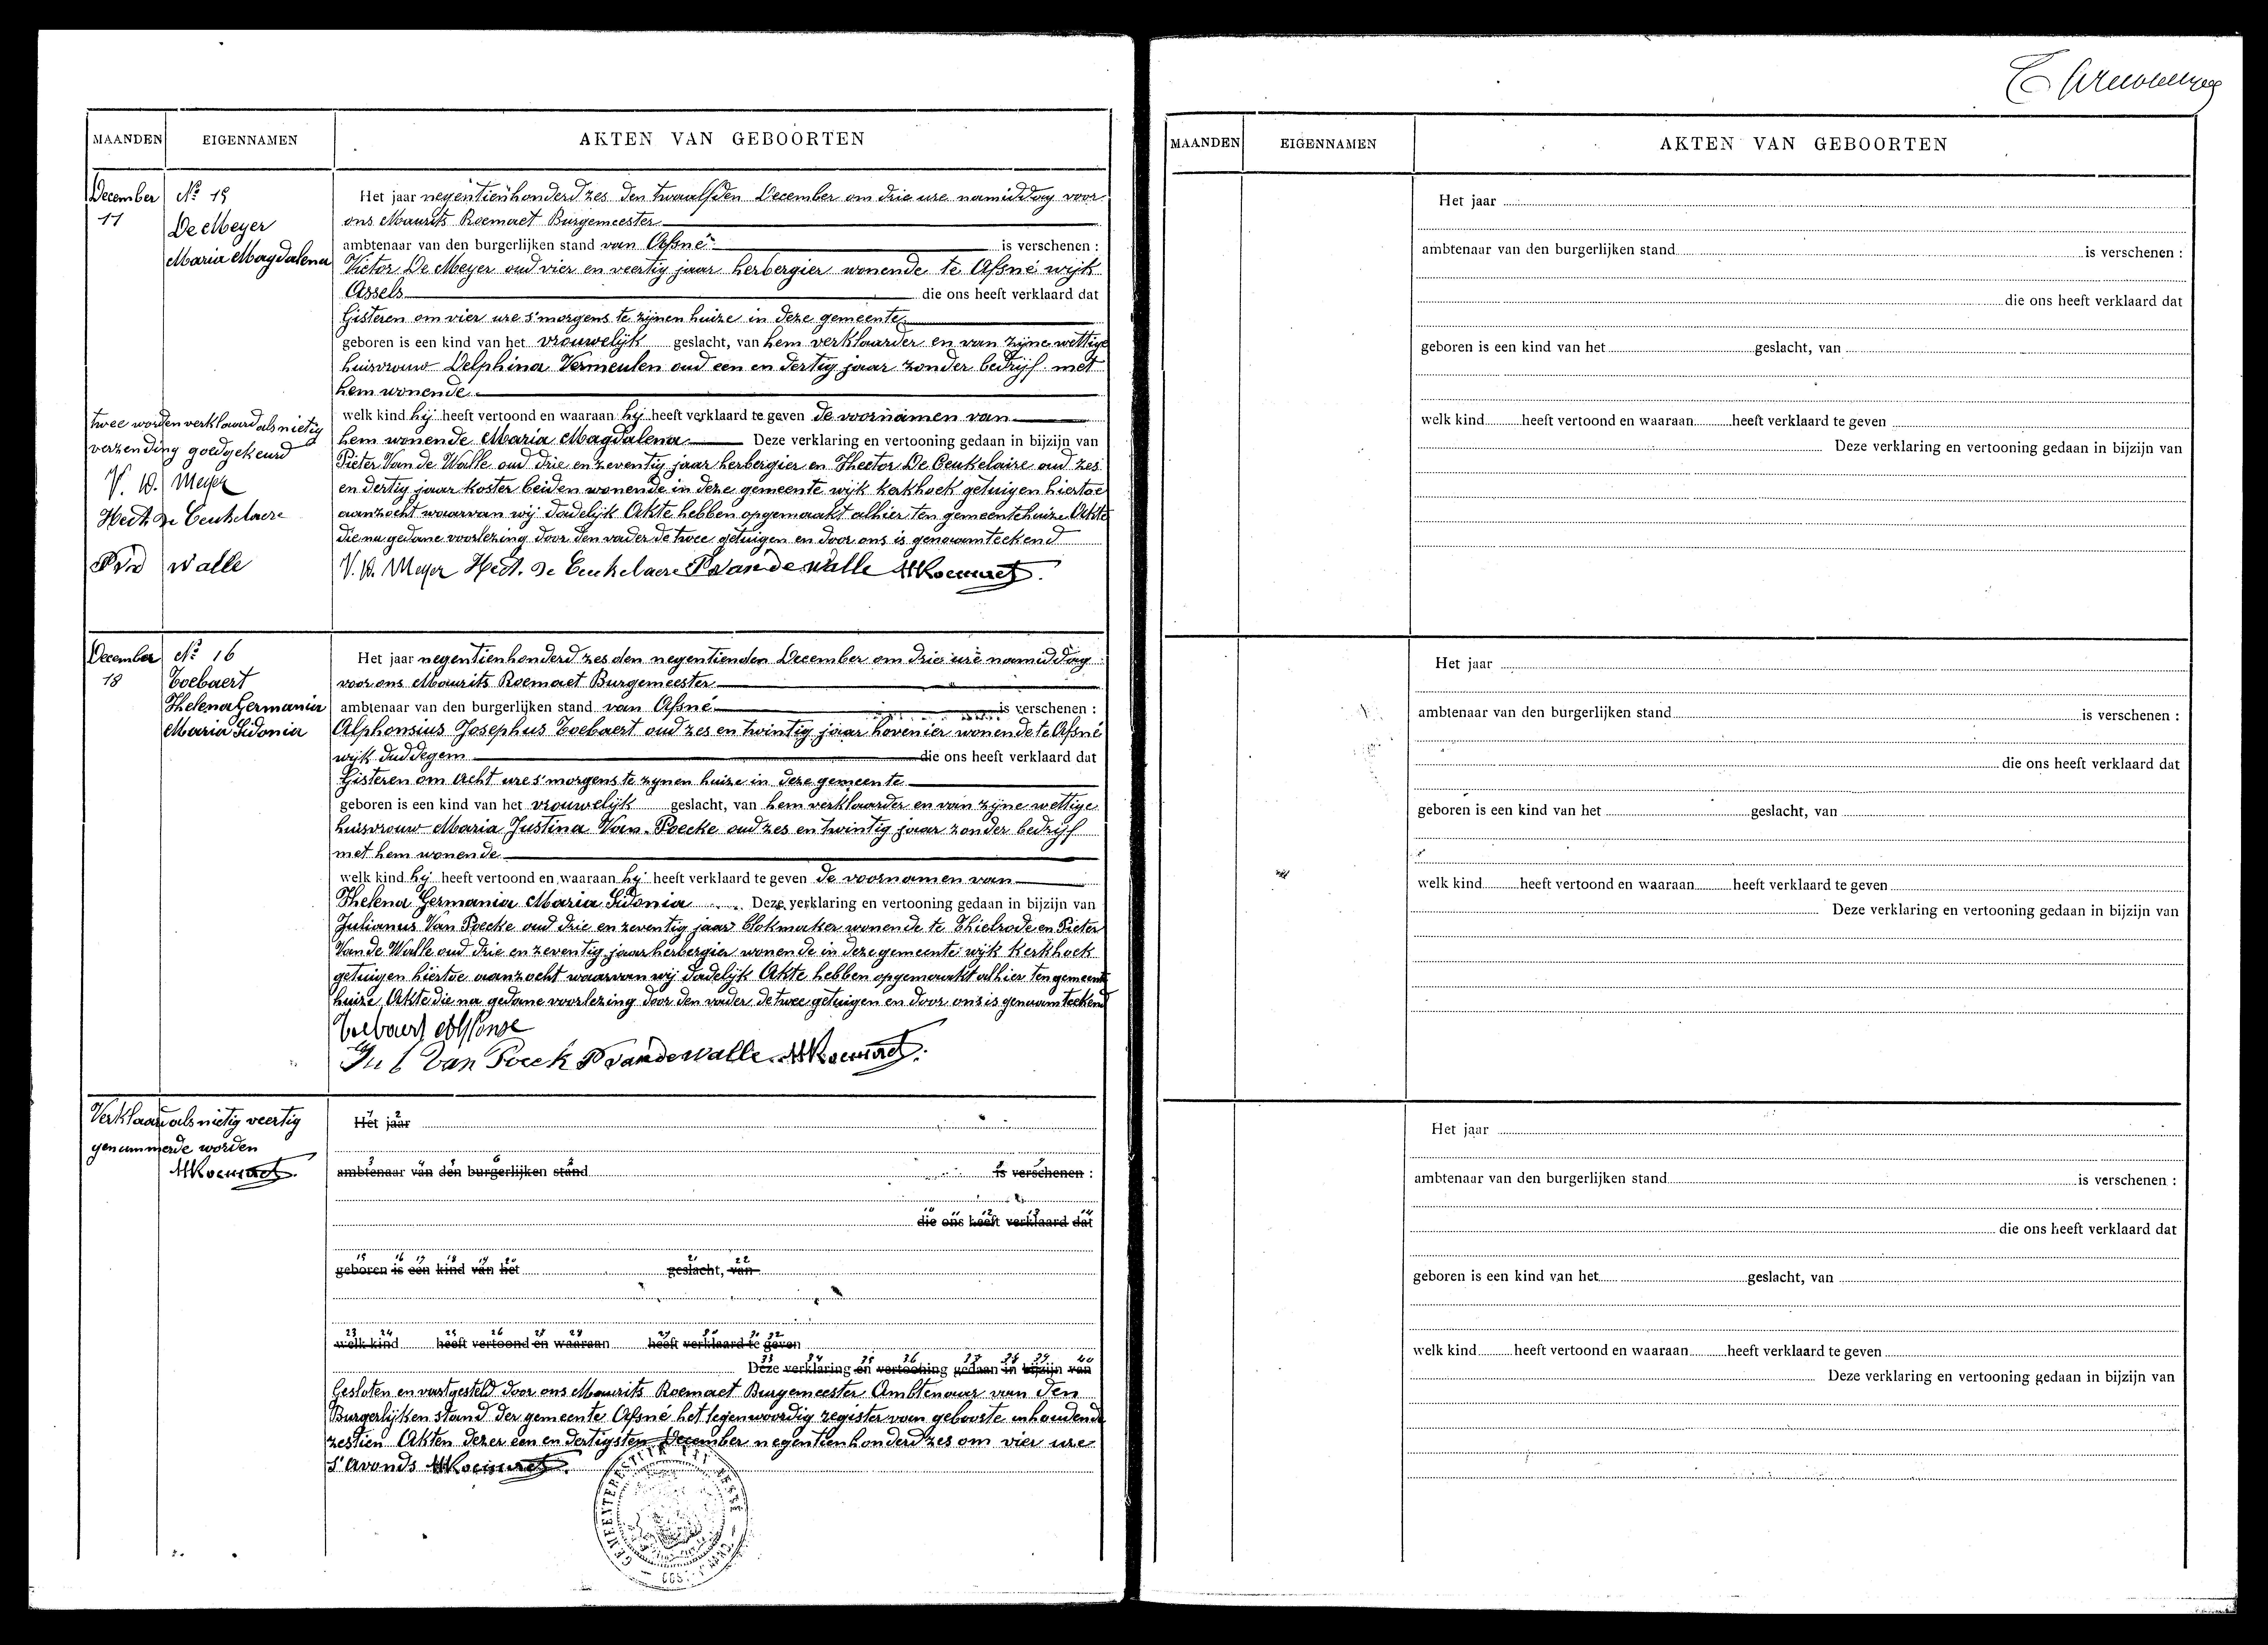 MAANDEN EIGENNAMEN AKTEN VAN GEBOORTEN
December
11
Nº 15
De Meyer
Maria Magdalena
Het jaar negentienhonderd zes den twaalfden December om drie ure namiddag voor
ons Maurits Roemaet Burgemeester
ambtenaar van den burgerlijken stand van Afsné is verschenen :
Victor De Meyer oud vier en veertig jaar herbergier wonende te Afsné wijk
Assels die ons heeft verklaard dat
Gisteren om vier ure s'morgens te zijnen huize in deze gemeente
geboren is een kind van het vrouwelijk geslacht, van hem verklaarder en van zijne wettige
huisvrouw Delphina Vermeulen oud een en dertig jaar zonder bedrijf met
hem wonende
welk kind hij heeft vertoond en waaraan hij heeft verklaard te geven de voornamen van
hem wonende Maria Magdalena Deze verklaring en vertooning gedaan in bijzijn van
Pieter Van de Walle oud drie en zeventig jaar herbergier en Hector De Ceukelaire oud zes
en dertig jaar koster beiden wonende in deze gemeente wijk kerkhoek getuigen hiertoe
aanzocht waarvan wij dadelijk Akte hebben opgemaakt alhier ten gemeentehuize Akte
die na gedane voorlezing door den vader de twee getuigen en door ons is genaamteekend
V. D. Meyer Hect. De Ceukelaere P Vandewalle MRoemaet
twee worden verklaard als nietig
verzending goedgekeurd
V. D. Meyer
Hect De Ceukelaere
P Vd Walle
December
18
Nº 16
Toebaert
Helena Germania
Maria Sidonia
Het jaar negentienhonderd zes den negentienden December om drie ure namiddag
voor ons Maurits Roemaet Burgemeester
ambtenaar van den burgerlijken stand van Afsné is verschenen :
Alphonsius Josephus Toebaert oud zes en twintig jaar hovenier wonende te Afsné
wijk duddegem die ons heeft verklaard dat
Gisteren om acht ure s'morgens te zynen huize in deze gemeente
geboren is een kind van het vrouwelijk geslacht, van hem verklaarder en van zijne wettige
huisvrouw Maria Justina Van Poecke oud zes en twintig jaar zonder bedrijf
met hem wonende
welk kind hij heeft vertoond en waaraan hij heeft verklaard te geven de voornamen van
Helena Germania Maria Sidonia Deze verklaring en vertooning gedaan in bijzijn van
Julianus Van Poecke oud drie en zeventig jaar blokmaker wonende te Thielrode en Pieter
Van de Walle oud drie en zeventig jaar herbergier wonende in deze gemeente wijk Kerkhoek
getuigen hiertoe aanzocht waarvan wij dadelijk Akte hebben opgemaakt alhier ten gemeente
huize Akte die na gedane voorlezing door den vader de twee getuigen en door ons is genaamteekend
Toebaert Alfonse
Jul Van Poeck P Vandewalle MRoemaet
Verklaard als nietig veertig
genummerde worden
MRoemaet
1 2
Het jaar
3 4 5 6 7 8 9
ambtenaar van den burgerlijken stand is verschenen :
10 11 12 13 14
die ons heeft verklaard dat
15 16 17 18 19 20 21 22
geboren is een kind van het geslacht, van
23 24 25 26 27 28 29 30 31 32
welk kind heeft vertoond en waaraan heeft verklaard te geven
33 34 35 36 37 38 39 40
Deze verklaring en vertooning gedaan in bijzijn van
Gesloten en vastgesteld door ons Maurits Roemaet Burgemeester Ambtenaar van den
Burgerlijken stand der gemeente Afsné het tegenwoordig register van geboorte inhoudende
zestien Akten dezer een en dertigsten December negentienhonderd zes om vier ure
S'Avonds MRoemaet
GEMEENTEBESTUUR
MAANDEN EIGENNAMEN AKTEN VAN GEBOORTEN
Het jaar
ambtenaar van den burgerlijken stand is verschenen :
die ons heeft verklaard dat
geboren is een kind van het geslacht, van
welk kind heeft vertoond en waaraan heeft verklaard te geven
Deze verklaring en vertooning gedaan in bijzijn van
Het jaar
ambtenaar van den burgerlijken stand is verschenen :
die ons heeft verklaard dat
geboren is een kind van het geslacht, van
welk kind heeft vertoond en waaraan heeft verklaard te geven
Deze verklaring en vertooning gedaan in bijzijn van
Het jaar
ambtenaar van den burgerlijken stand is verschenen :
die ons heeft verklaard dat
geboren is een kind van het geslacht, van
welk kind heeft vertoond en waaraan heeft verklaard te geven
Deze verklaring en vertooning gedaan in bijzijn van